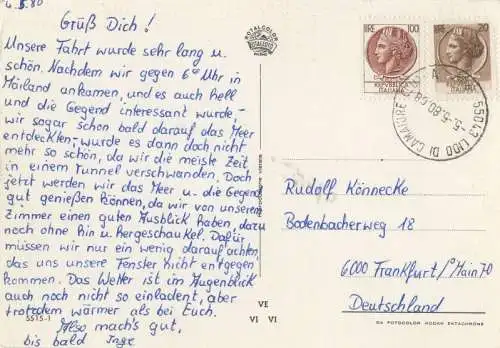 4.5.80
Grüß Dich!
Unsere Fahrt wurde sehr lang u.
schön. Nachdem wir gegen 6⁰⁰ Uhr in
Mailand ankamen, und es auch hell
und die Gegend interessant wurde,-
wir sogar schon bald darauf das Meer
entdeckten, wurde es dann doch nicht
mehr so schön, da wir die meiste Zeit
in einem Tunnel verschwanden. Doch
jetzt werden wir das Meer u. die Gegend
gut genießen können, da wir von unserem
Zimmer einen guten Ausblick haben, dazu
noch ohne hin u. hergeschaukel. Dafür
müssen wir nur ein wenig darauf achten,
das uns unsere Fenster nicht entgegen
kommen. Das Wetter ist im Augenblick
auch noch nicht so einladent, aber
trotzdem wärmer als bei Euch.
Also mach's gut,
bis bald Inge
5515-1
VE
VI VI
ROTALCOLOR
ROTALFOTO
LIRE 100
ITALIANA
LIRE 20
ITALIANA
55043 LIDO DI CAMAIORE
5-5-80
Rudolf Könnecke
Bodenbacherweg 18
6000 Frankfurt/Main 70
Deutschland
DA FOTOCOLOR KODAK EKTACHROME